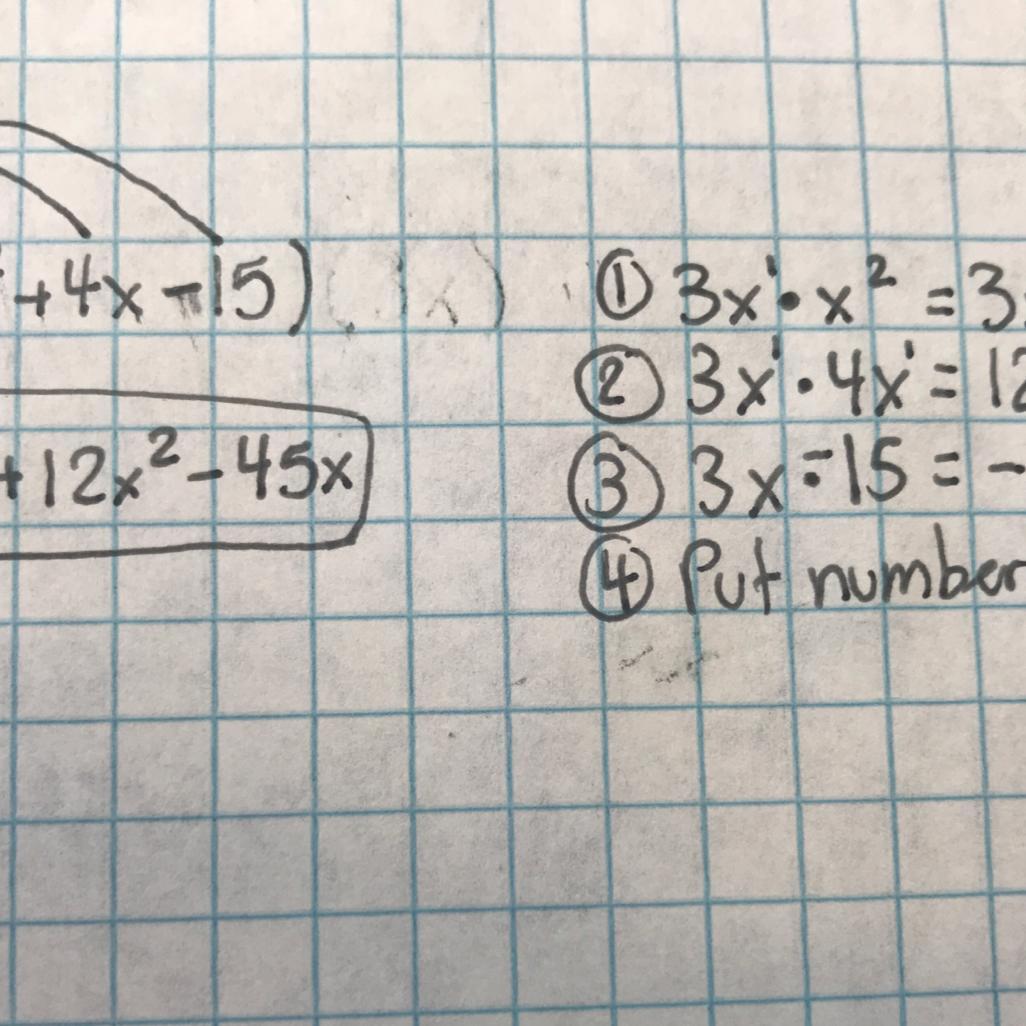 +4x -15)
+12x² - 45x
① 3x¹ • x² = 3
② 3x¹ • 4x¹ = 12
③ 3x • -15 = -
④ Put number